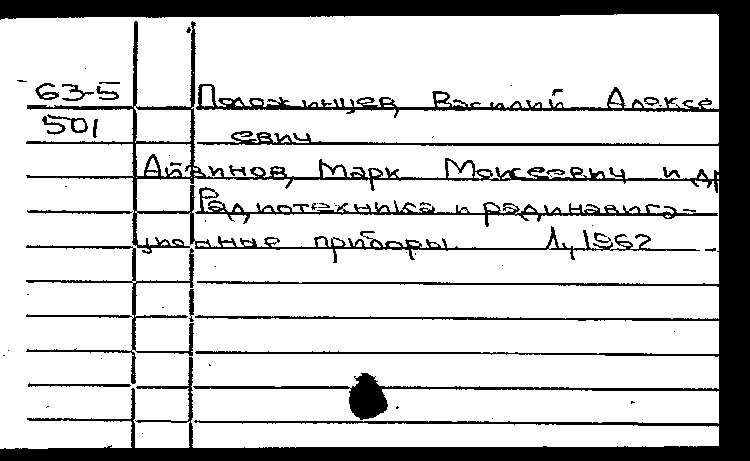 63-5 Положинцев, Василий Алексе
501 евич
Айзинов, Марк Моисеевич и др
Радиотехника и радионавига-
ционные приборы. Л, 1962